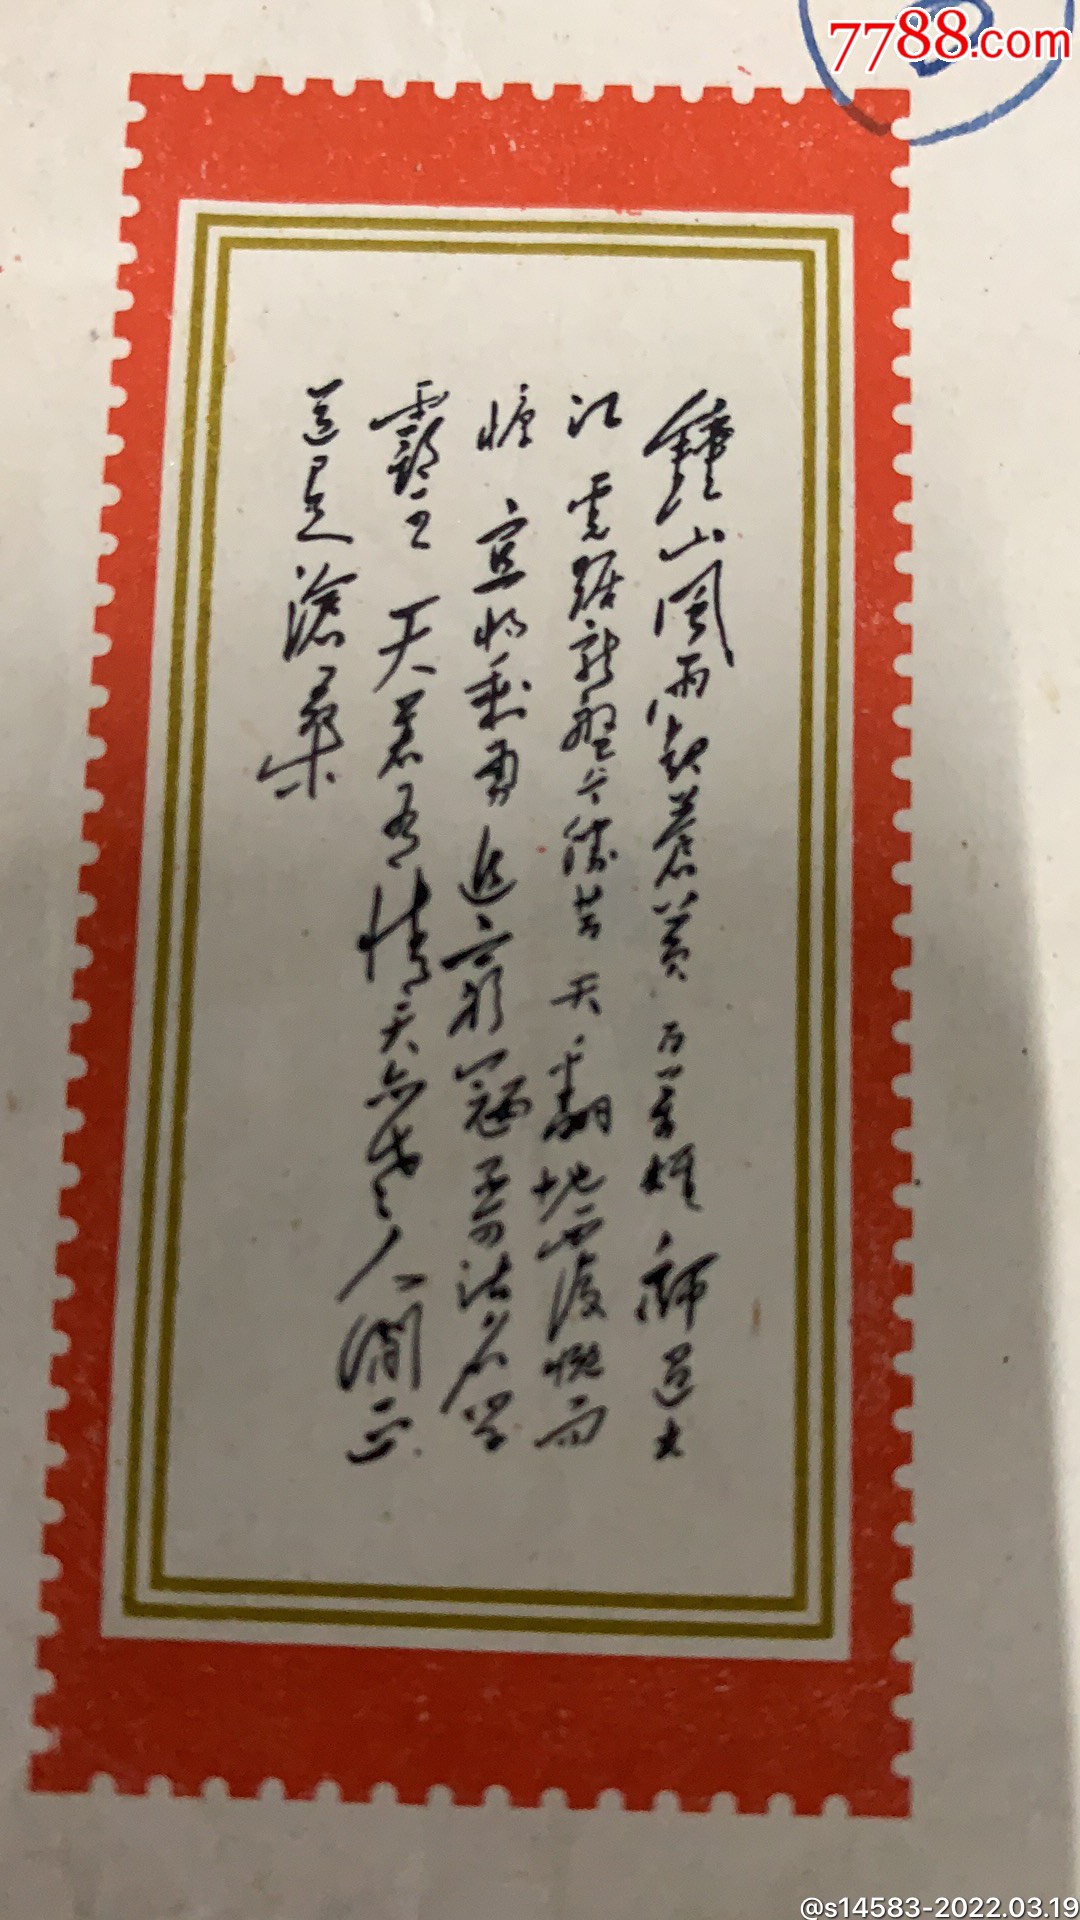 7788.com
鍾山風雨起蒼黃 百萬雄師過大
江 虎踞龍盤今勝昔 天翻地覆慨而
慷 宜将剩勇追窮寇 不可沽名学
霸王 天若有情天亦老 人間正
道是滄桑
@s14583-2022.03.19